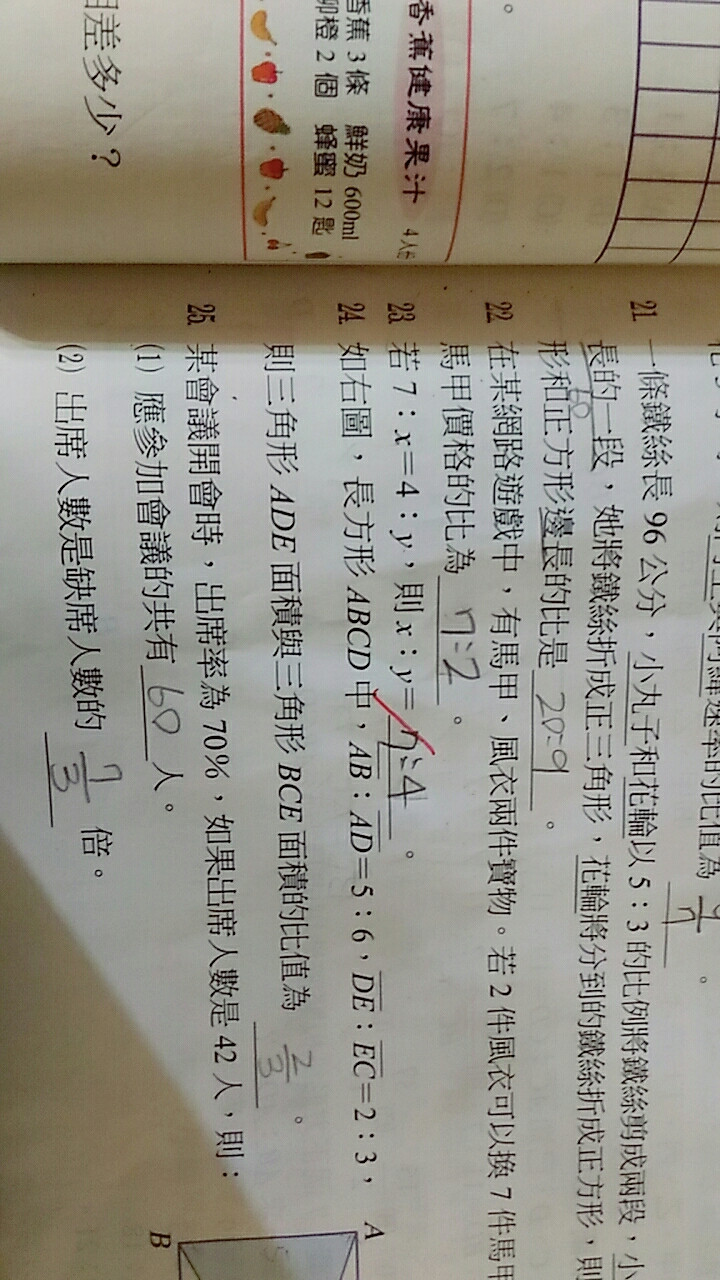 香蕉健康果汁 4人份
香蕉 3 條 鮮奶 600ml
柳橙 2 個 蜂蜜 12 匙
相差多少？
率的比值為
21 一條鐵絲長 96 公分，小丸子和花輪以 5：3 的比例將鐵絲剪成兩段，小
長的一段，她將鐵絲折成正三角形，花輪將分到的鐵絲折成正方形，則
60
形和正方形邊長的比是 20:9 。
22 在某網路遊戲中，有馬甲、風衣兩件寶物。若 2 件風衣可以換 7 件馬甲
馬甲價格的比為 7:2 。
23 若 7：x＝4：y，則 x：y＝ 7:4 。
24 如右圖，長方形 ABCD 中，AB：AD＝5：6，DE：EC＝2：3，
則三角形 ADE 面積與三角形 BCE 面積的比值為 2/3 。
25 某會議開會時，出席率為 70%，如果出席人數是 42 人，則：
(1) 應參加會議的共有 60 人。
(2) 出席人數是缺席人數的 7/3 倍。
A
B